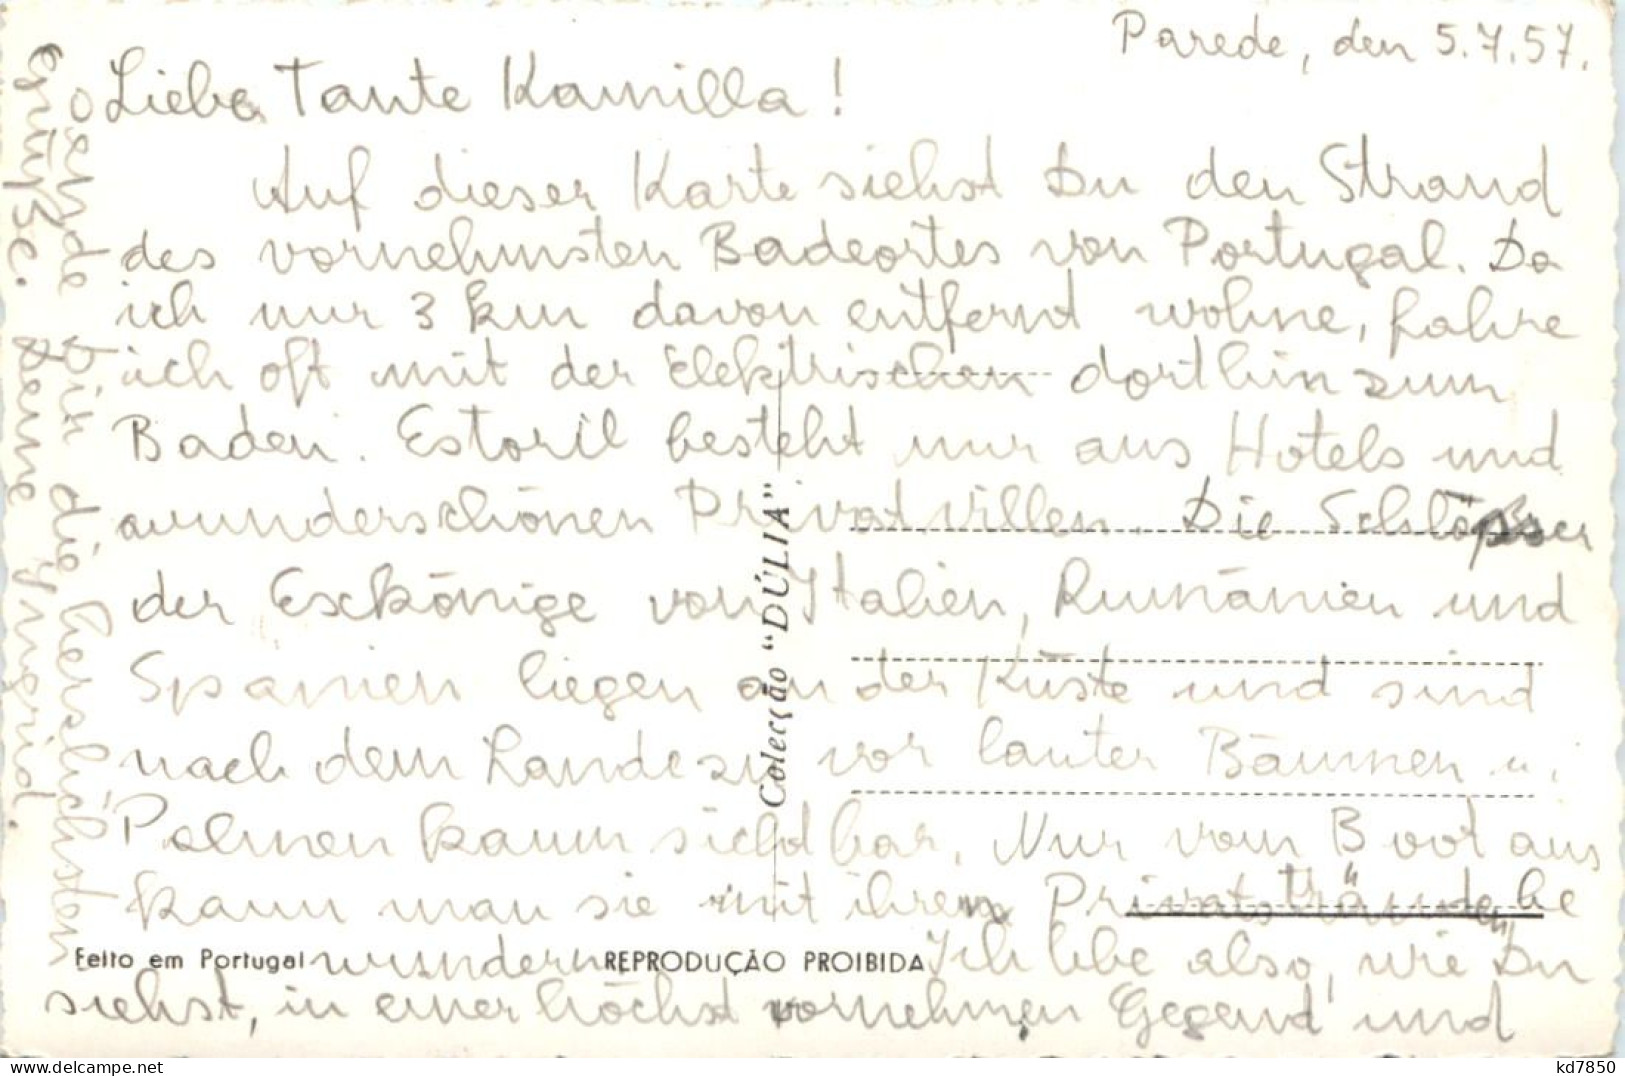 Parede, den 5.7.57.
Liebe Tante Kamilla!
Auf dieser Karte siehst Du den Strand
des vornehmsten Badeortes von Portugal. Da
ich nur 3 km davon entfernt wohne, fahre
ich oft mit der Elektrischen dorthin zum
Baden. Estoril besteht nur aus Hotels und
wunderschönen Privatvillen. Die Schlösser
der Exkönige von Italien, Rumänien und
Spanien liegen an der Küste und sind
nach dem Lande zu vor lauter Bäumen u.
Palmen kaum sichtbar. Nur vom Boot aus
kann man sie mit ihren Privatstränden be
wundern. Ich lebe also, wie Du
siehst, in einer höchst vornehmen Gegend und
sende Dir die herzlichsten
Grüße. Deine Yngrid.
Colecção "DÚLIA"
Feito em Portugal
REPRODUÇÃO PROIBIDA
kd7850